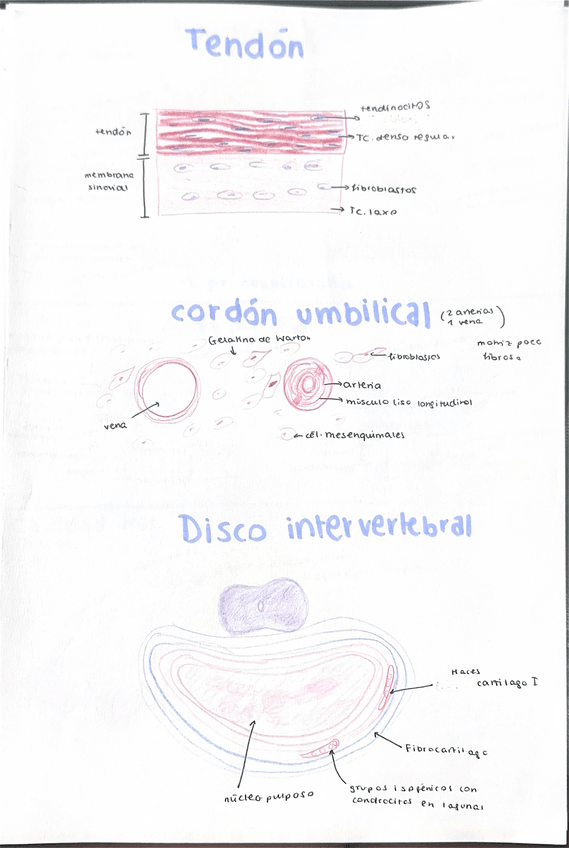 Tendón
tendinocitos
tendón
TC. denso regular
membrana
sinovial
fibroblastos
TC. laxo
cordón umbilical (2 arterias
1 vena)
Gelatina de Warton
fibroblastos
matriz poco
fibrosa
arteria
músculo liso longitudinal
vena
cél. mesenquimales
Disco intervertebral
Haces
cartilago I
Fibrocartilago
núcleo pulposo
grupos isogénicos con
condrocitos en lagunas